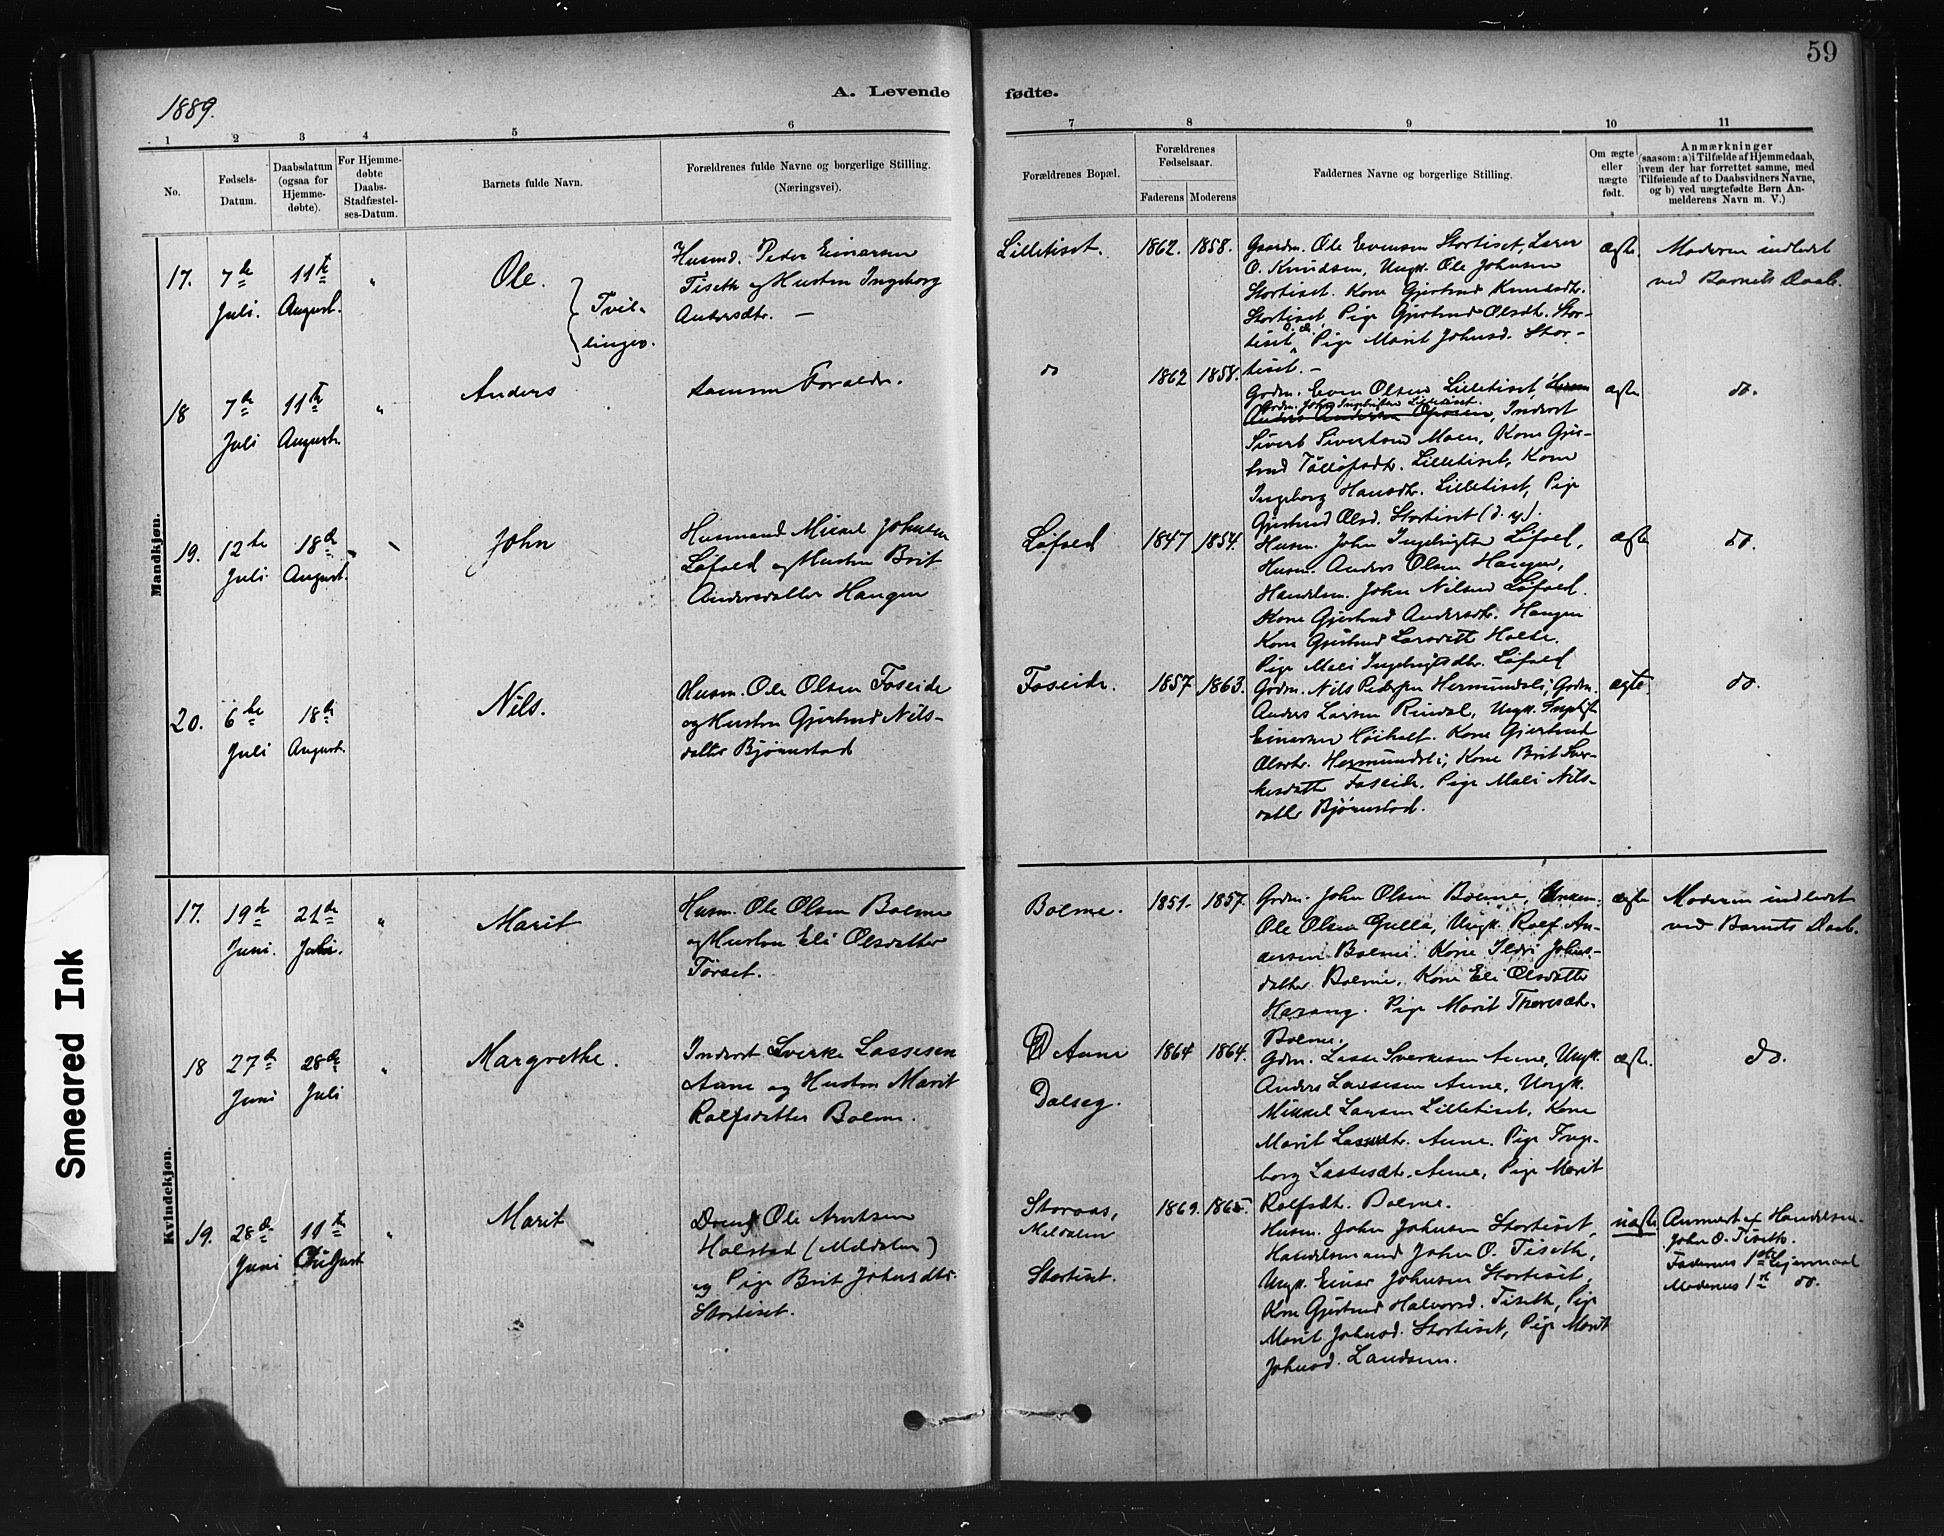 59
1889.
A. Levende fødte.
1 2 3 4 5 6 7 8 9 10 11
No.
Fødsels-
Datum.
Daabsdatum
(ogsaa for
Hjemme-
døbte).
For Hjemme-
døbte
Daabs-
Stadfæstel-
ses-Datum.
Barnets fulde Navn.
Forældrenes fulde Navne og borgerlige Stilling.
(Næringsvei).
Forældrenes Bopæl.
Forældrenes
Fødselsaar.
Faderens Moderens
Faddernes Navne og borgerlige Stilling.
Om ægte
eller
uægte
født.
Anmærkninger
(saasom: a) i Tilfælde af Hjemmedaab,
hvem der har forrettet samme, med
Tilføiende af to Daabsvidners Navne,
og b) ved uægtefødte Børn An-
melderens Navn m. V.)
Mandkjøn.
17.
7de
Juli.
11te
August.
"
Ole.
Tvil-
linger.
Husmd. Peder Einarsen
Tiseth og Hustru Ingeborg
Andersdtr. —
Lilletiset.
1862. 1858.
Gaardm. Ole Evensen Stortiset, Lærer
O. Knudsen, Ungk. Ole Johnsen
Stortiset. Kone Gjertrud Knudsdtr.
Stortiset, Pige Gjertrud Olsdtr. Stor-
tiset, Pige Marit Johnsd. Stor-
tiset. —
ægte.
Moderen indledet
ved Barnets Daab.
18
7de
Juli
11te
August.
"
Anders
samme Forældr.
do
1862 1858.
Grdm. Even Olsen Lilletiset,
Grdm. John Ingebrigtsen Lilletiset.
Inderst
Sivert Sivertsen Moen, Kone Gjer-
trud Tollofsdtr. Lilletiset, Kone
Ingeborg Hansdtr. Lilletiset, Pige
Gjertrud Olsd. Stortiset (d. y.).
ægte
do.
19.
12te
Juli.
18de
August.
"
John
Husmand Mikael Johnsen
Løfald og Hustru Brit
Andersdatter Haugen
Løfald
1847 1854.
Husm. John Ingebrigtsen Løfald,
Husm. Anders Olsen Haugen,
Handelsm. John Nilsen Løfald.
Kone Gjertrud Andersdtr. Haugen
Kone Gjertrud Larsdatt Holte.
Pige Mali Ingebrigtsdtr. Løfald
ægte
do.
20.
6te
Juli
18de
August.
Nils.
Husm. Ole Olsen Foseide
og Hustru Gjertrud Nils-
datter Bjørnstad
Foseide.
1857 1863.
Grdm. Nils Pedersen Hermundsli, Grdm.
Anders Larsen Rindal, Ungk. Ingebrigt
Einarsen Høiholt. Kone Gjertrud
Olsdtr. Hermundsli, Kone Brit Sver-
kesdatter Foseide, Pige Mali Nils-
datter Bjørnstad.
ægte
do.
Kvindekjøn.
17.
19de
Juni.
21de
Juli.
"
Marit
Husm. Ole Olsen Bolme
og Hustru Eli Olsdatter
Torset.
Bolme.
1851. 1857.
Grdm. John Olsen Bolme,
Ole Olsen Gulla, Ungk. Rolf An-
dersen Bolme. Kone Ildri Johns-
datter Bolme. Kone Eli Olsdatter
Harang. Pige Marit
Bolme.
ægte
Moderen indledet
ved Barnets Daab.
18
27de
Juni
28de
Juli
"
Margrethe.
Inderst Sverke Lassesen
Aune og Hustru Marit
Rolfsdatter Bolme.
Aune
Dalseg.
1864 1864.
Grdm. Lasse Sverkesen Aune, Ungk.
Anders Lassesen Aune, Ungk.
Mikkel Larsen Lilletiset, Kone
Marit Lassedtr. Aune. Pige Inge-
borg Lassesdtr. Aune, Pige Marit
Rolfsdt. Bolme.
ægte.
do.
19.
28de
Juni
11te
August
"
Marit
Dreng Ole Arntsen
Holstad (Meldalen)
og Pige Brit Johnsdtr.
Stortiset.
Storaas,
Meldalen
Stortiset.
1869. 1865.
Husm. John Johnsen Stortiset,
Handelsmand John O. Tiseth,
Ungk. Einar Johnsen Stortiset,
Kone Gjertrud Halvorsd. Tiseth, Pige
Marit Johnsd. Stortiset, Pige Marit
Johnsd. Landsem.
uægte
Anmeldt af Handelsm.
John O. Tiseth.
Faderens 1ste Leiermaal
Moderens 1st do.
Smeared Ink